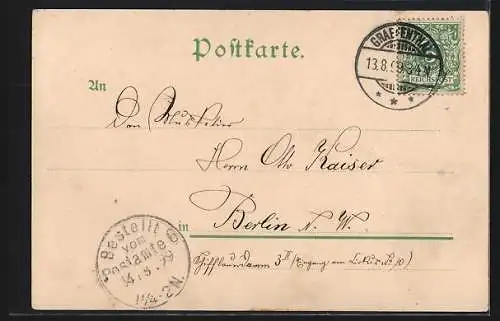 Postkarte.
GRAEFENTHAL
13.8.99 3-4 N
REICHSPOST
An
Den Musketier
Herrn Otto Kaiser
in Berlin N. W.
Schiffbauerdamm 3 II (Eingang am
Bestellt
vom
Postamte 6
14.8.99
11/4-2N.